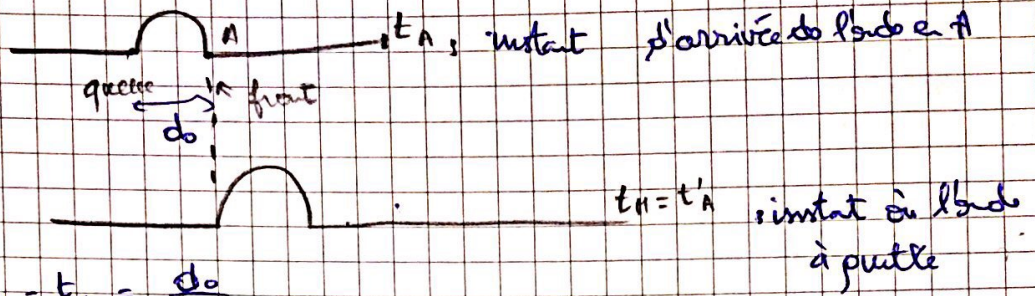 A t_A, instant d'arrivée de l'onde en A
queue front
d₀
t_A = t'_A, instant où l'onde
à quitte
- t - d₀